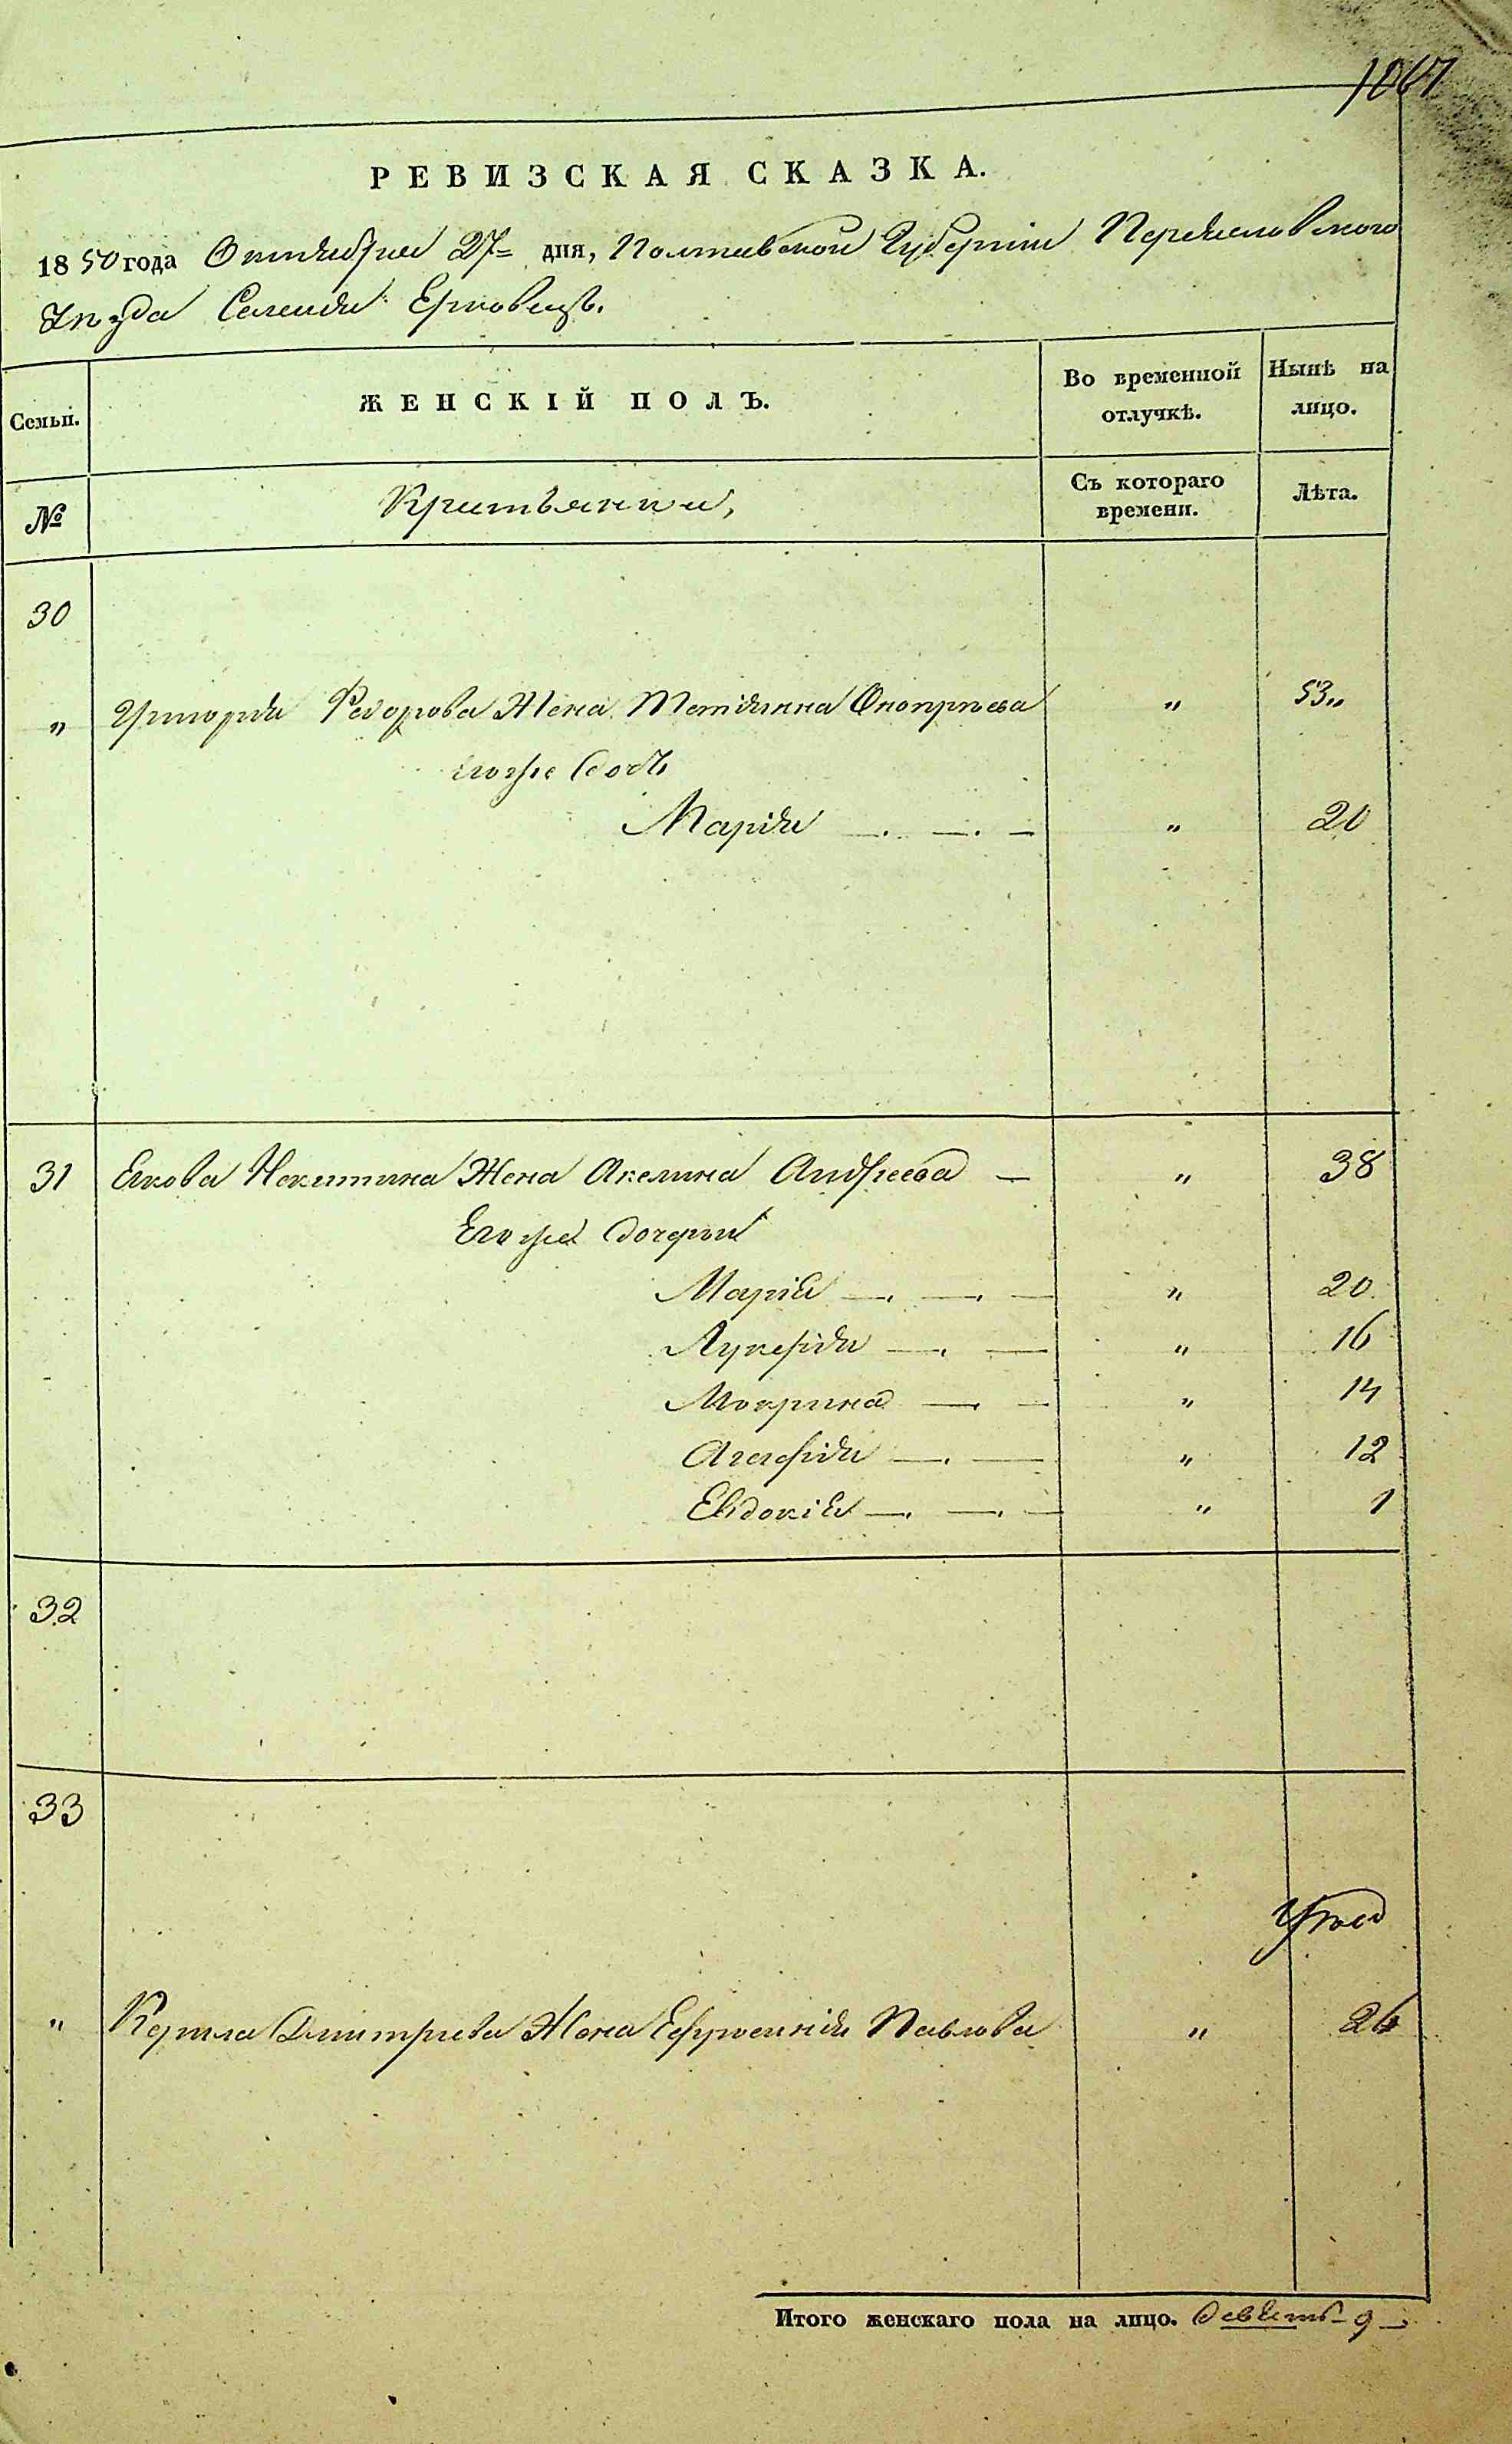 1067
РЕВИЗСКАЯ СКАЗКА.
1850 года Октября 27 дня, Полтавской Губерніи Переяславского
Уѣзда Селенія Ерковецъ.
Семьи. ЖЕНСКІЙ ПОЛЪ. Во временной отлучкѣ. Нынѣ на лицо.
№ Съ котораго времени. Лѣта.
30
„ Григорія Федорова Жена Меті­янна Онопріева „ 53„
егоже дочь
Марія „ 20
31 Якова Никитина Жена Акелина Андреева — „ 38
Егоже дочери
Марія „ 20
Лукерія „ 16
Мокрина „ 14
Агафія „ 12
Евдокія „ 1
32
33
„ Корила Дмитріева Жена Ефросинія Павлова „ 26
Итого женскаго пола на лицо. девять 9